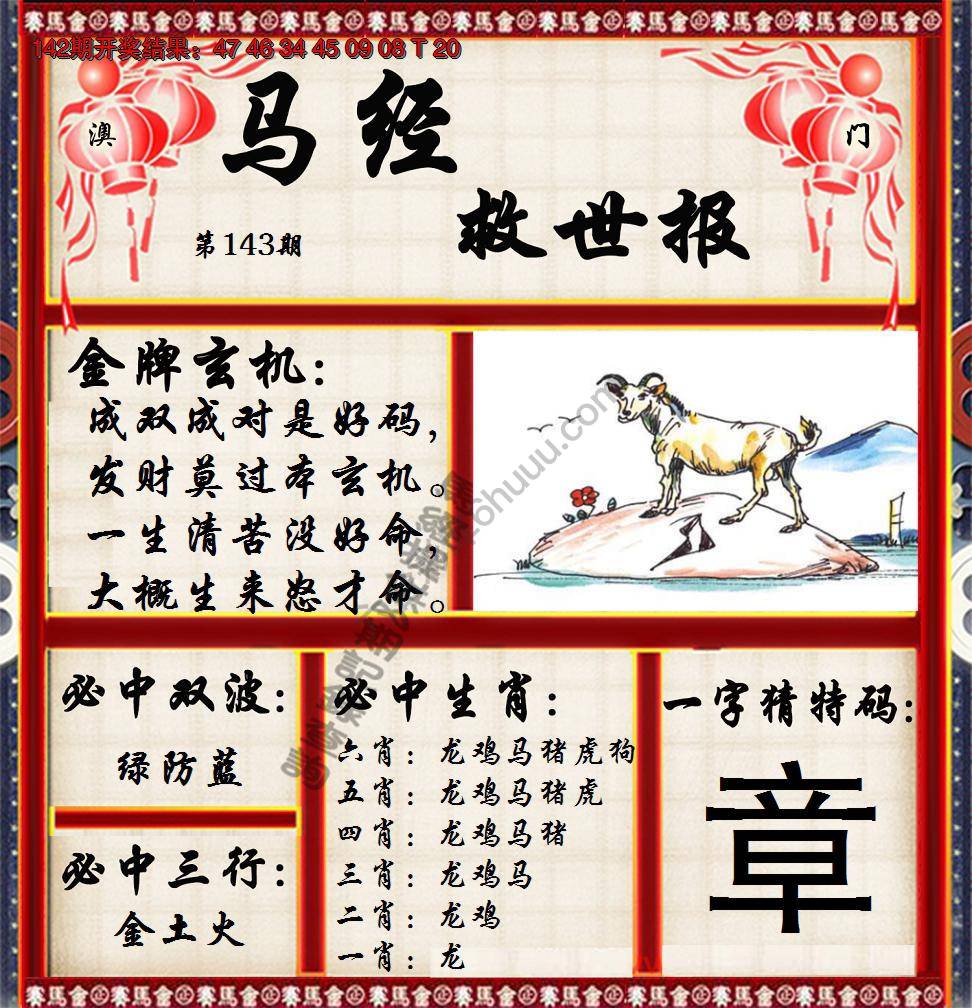 142期开奖结果：47 46 34 45 09 08 T 20
澳
门
马经
救世报
第143期
金牌玄机：
成双成对是好码，
发财莫过本玄机。
一生清苦没好命，
大概生来怒才命。
必中双波：
绿防蓝
必中三行：
金土火
必中生肖：
六肖：龙鸡马猪虎狗
五肖：龙鸡马猪虎
四肖：龙鸡马猪
三肖：龙鸡马
二肖：龙鸡
一肖：龙
一字猜特码：
章